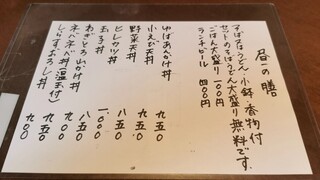 昼の膳
そば又はうどん・小鉢・香物付
セットのそばうどん大盛り無料です。
ごはん大盛り 一〇〇円
ランチビール 四〇〇円
ゆばあんかけ丼 九五〇
小えび天丼 九五〇
野菜天丼 八五〇
ヒレカツ丼 一、〇〇〇
玉子丼 八五〇
わさとろ山かけ丼 九〇〇
ネバネバ丼(温玉付) 九五〇
しらすおろし丼 九〇〇